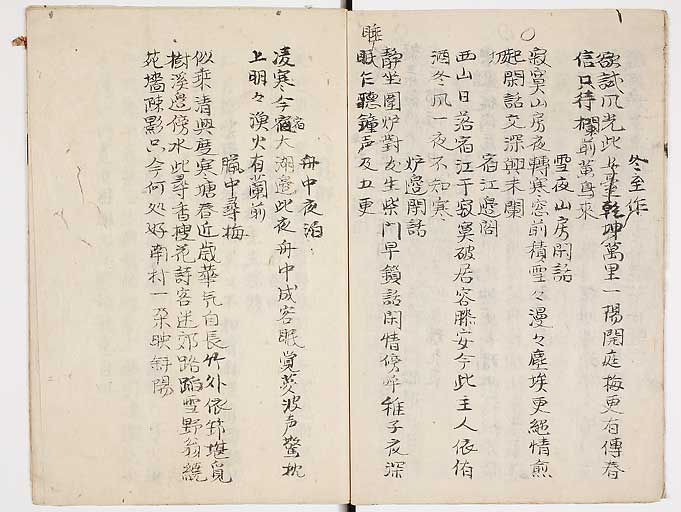 冬至作
乾坤萬里一陽開庭梅更有傳春
信只待欄前萬鳥來
雪夜山房閑話
寂寞山房夜轉寒窓前積雪々漫々塵埃更絕情愈
起閑話交深興未闌
宿江邊閣
西山日落宿江干寂寞破居容膝安今此主人依佑
酒冬風一夜不知寒
炉邊閑話
靜坐圍炉對友生柴門早鎖話閑情傍呼稚子夜深
睡
眠仁聽鐘声及五更
舟中夜泊
凌寒今宿大湖邉此夜舟中成客眠覚夢波声驚枕
宿
上明々漁火有蘭前
臘中尋梅
似乘清興度寒塘春近歲華氣自長竹外依節堪覓
樹溪邉傍水此尋香搜花詩客迷郊路蹈雪野翁繞
苑墻疎影只今何処好南村一朶映斜陽